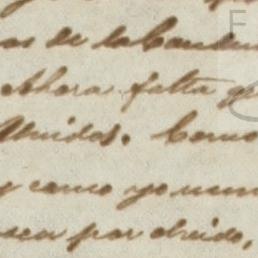 as de la
Ahora falta
Olvidos. Como
y como yo
sea por olvido,